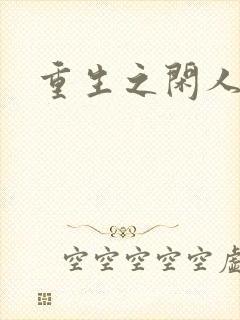 重生之閑人
空空空空空虛